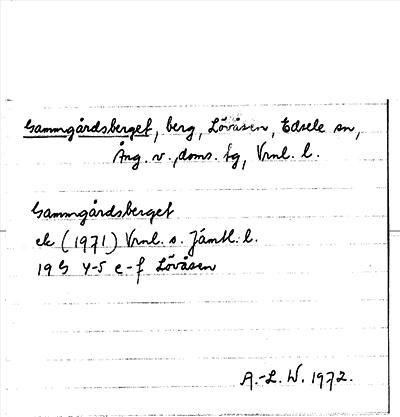 Gammgårdsberget, berg, Lövåsen, Edsele sn,
Ång. v. doms. tg, Vrnl. l.
Gammgårdsberget
ek (1971) Vrnl. s. Jämtl. l.
19 G 4-5 e-f Lövåsen
A.-L. W. 1972.